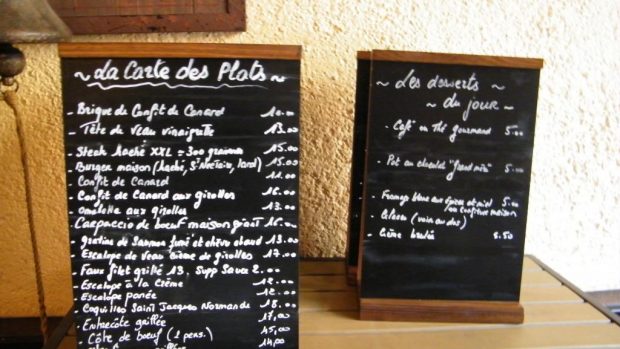 ~ La Carte des Plats ~
- Brique de Confit de Canard 10.00
- Tête de Veau vinaigrette 13.00
- Steak Haché XXL = 300 grammes 15.00
- Burger maison (haché, St Nectaire, lard) 15.00
- Confit de Canard 11.00
- Confit de Canard aux girolles 16.00
- Omelette aux girolles 13.00
Carpaccio de bœuf maison géant 16.00
- gratin de Saumon fumé et chèvre chaud 13.00
- Escalope de Veau crème de girolles 17.00
- Faux filet grillé 13. Supp Sauce 2.00
- Escalope à la Crème 12.00
- Escalope panée 12.00
- Coquilles Saint Jacques Normande 18.00
- Entrecôte grillée 17,00
- Côte de bœuf (2 pers.) 45,00
14,00
~ Les desserts ~
~ du jour ~
- Café ou Thé gourmand 5.00
- Pot au chocolat "grand mère" 5.00
- Fromage blanc aux épices et miel 5.00
ou confiture maison
- Glaces (voir au dos)
- Crème brulée 5.50